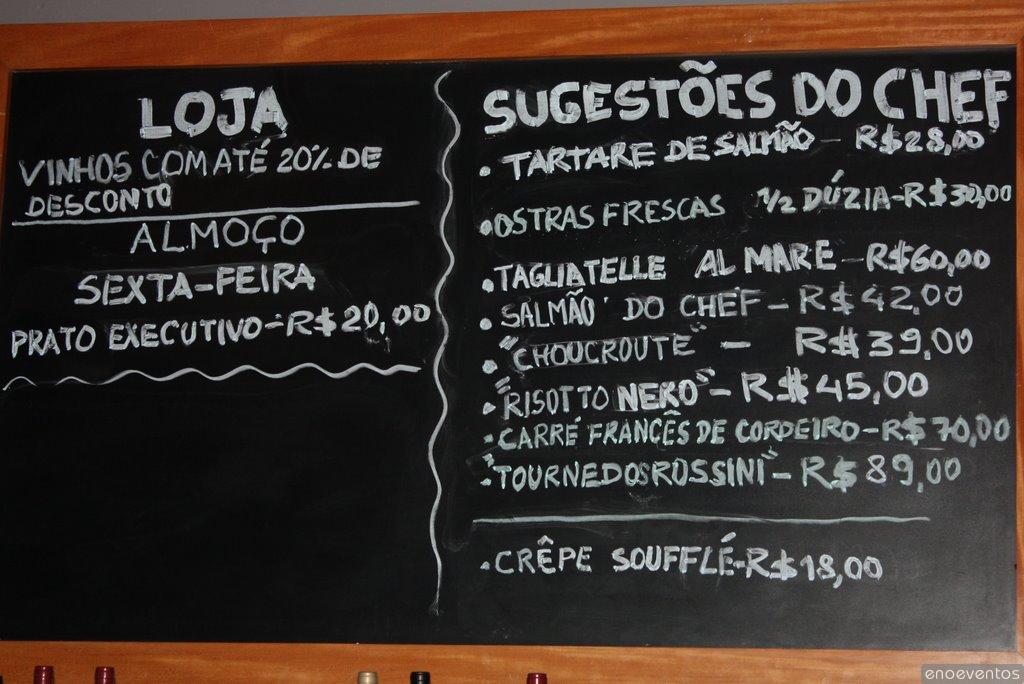 LOJA
VINHOS COM ATÉ 20% DE
DESCONTO
ALMOÇO
SEXTA-FEIRA
PRATO EXECUTIVO-R$20,00
SUGESTÕES DO CHEF
• TARTARE DE SALMÃO - R$28,00
• OSTRAS FRESCAS 1/2 DÚZIA-R$30,00
• TAGLIATELLE AL MARE-R$60,00
• SALMÃO DO CHEF-R$42,00
• "CHOUCROUTE" - R$39,00
• "RISOTTO NERO" - R$45,00
• CARRÉ FRANCÊS DE CORDEIRO-R$70,00
• "TOURNEDOS ROSSINI"-R$89,00
• CRÊPE SOUFFLÉ-R$18,00
enoeventos